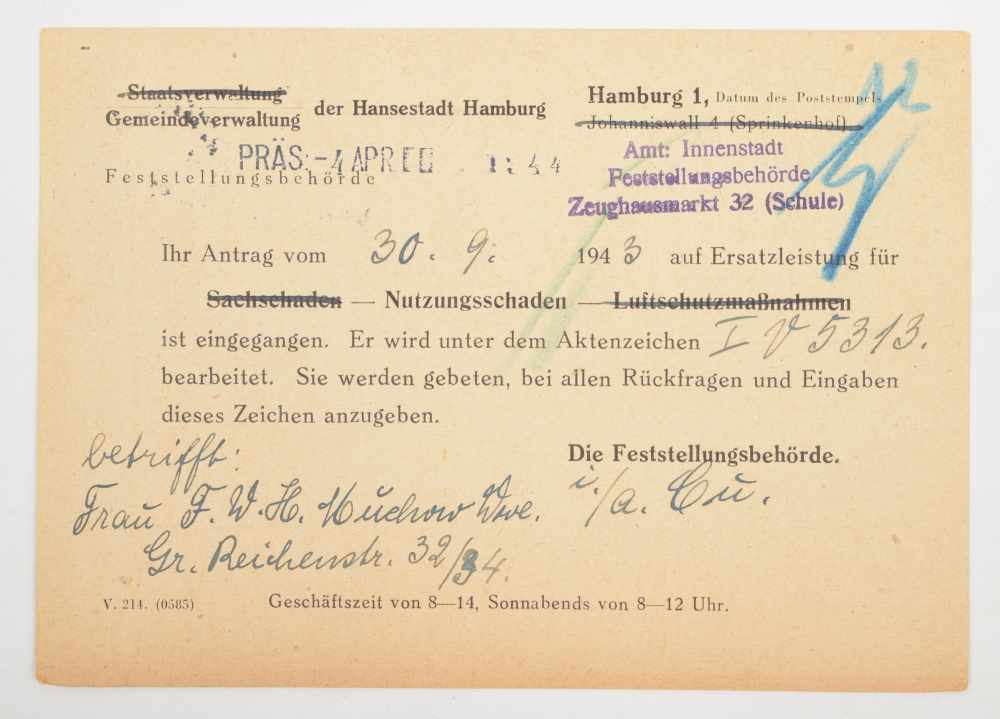 Staatsverwaltung
Gemeindeverwaltung der Hansestadt Hamburg
Hamburg 1, Datum des Poststempels
Johanniswall 4 (Sprinkenhof)
PRÄS: -4 APR. 1944
Feststellungsbehörde
Amt: Innenstadt
Feststellungsbehörde
Zeughausmarkt 32 (Schule)
Ihr Antrag vom 30. 9. 1943 auf Ersatzleistung für
Sachschaden — Nutzungsschaden — Luftschutzmaßnahmen
ist eingegangen. Er wird unter dem Aktenzeichen I V 5313.
bearbeitet. Sie werden gebeten, bei allen Rückfragen und Eingaben
dieses Zeichen anzugeben.
Die Feststellungsbehörde.
i./a. Cu.
betrifft:
Frau F. W. H. Muchow Wwe.
Gr. Reichenstr. 32/34.
V. 214. (0585) Geschäftszeit von 8—14, Sonnabends von 8—12 Uhr.